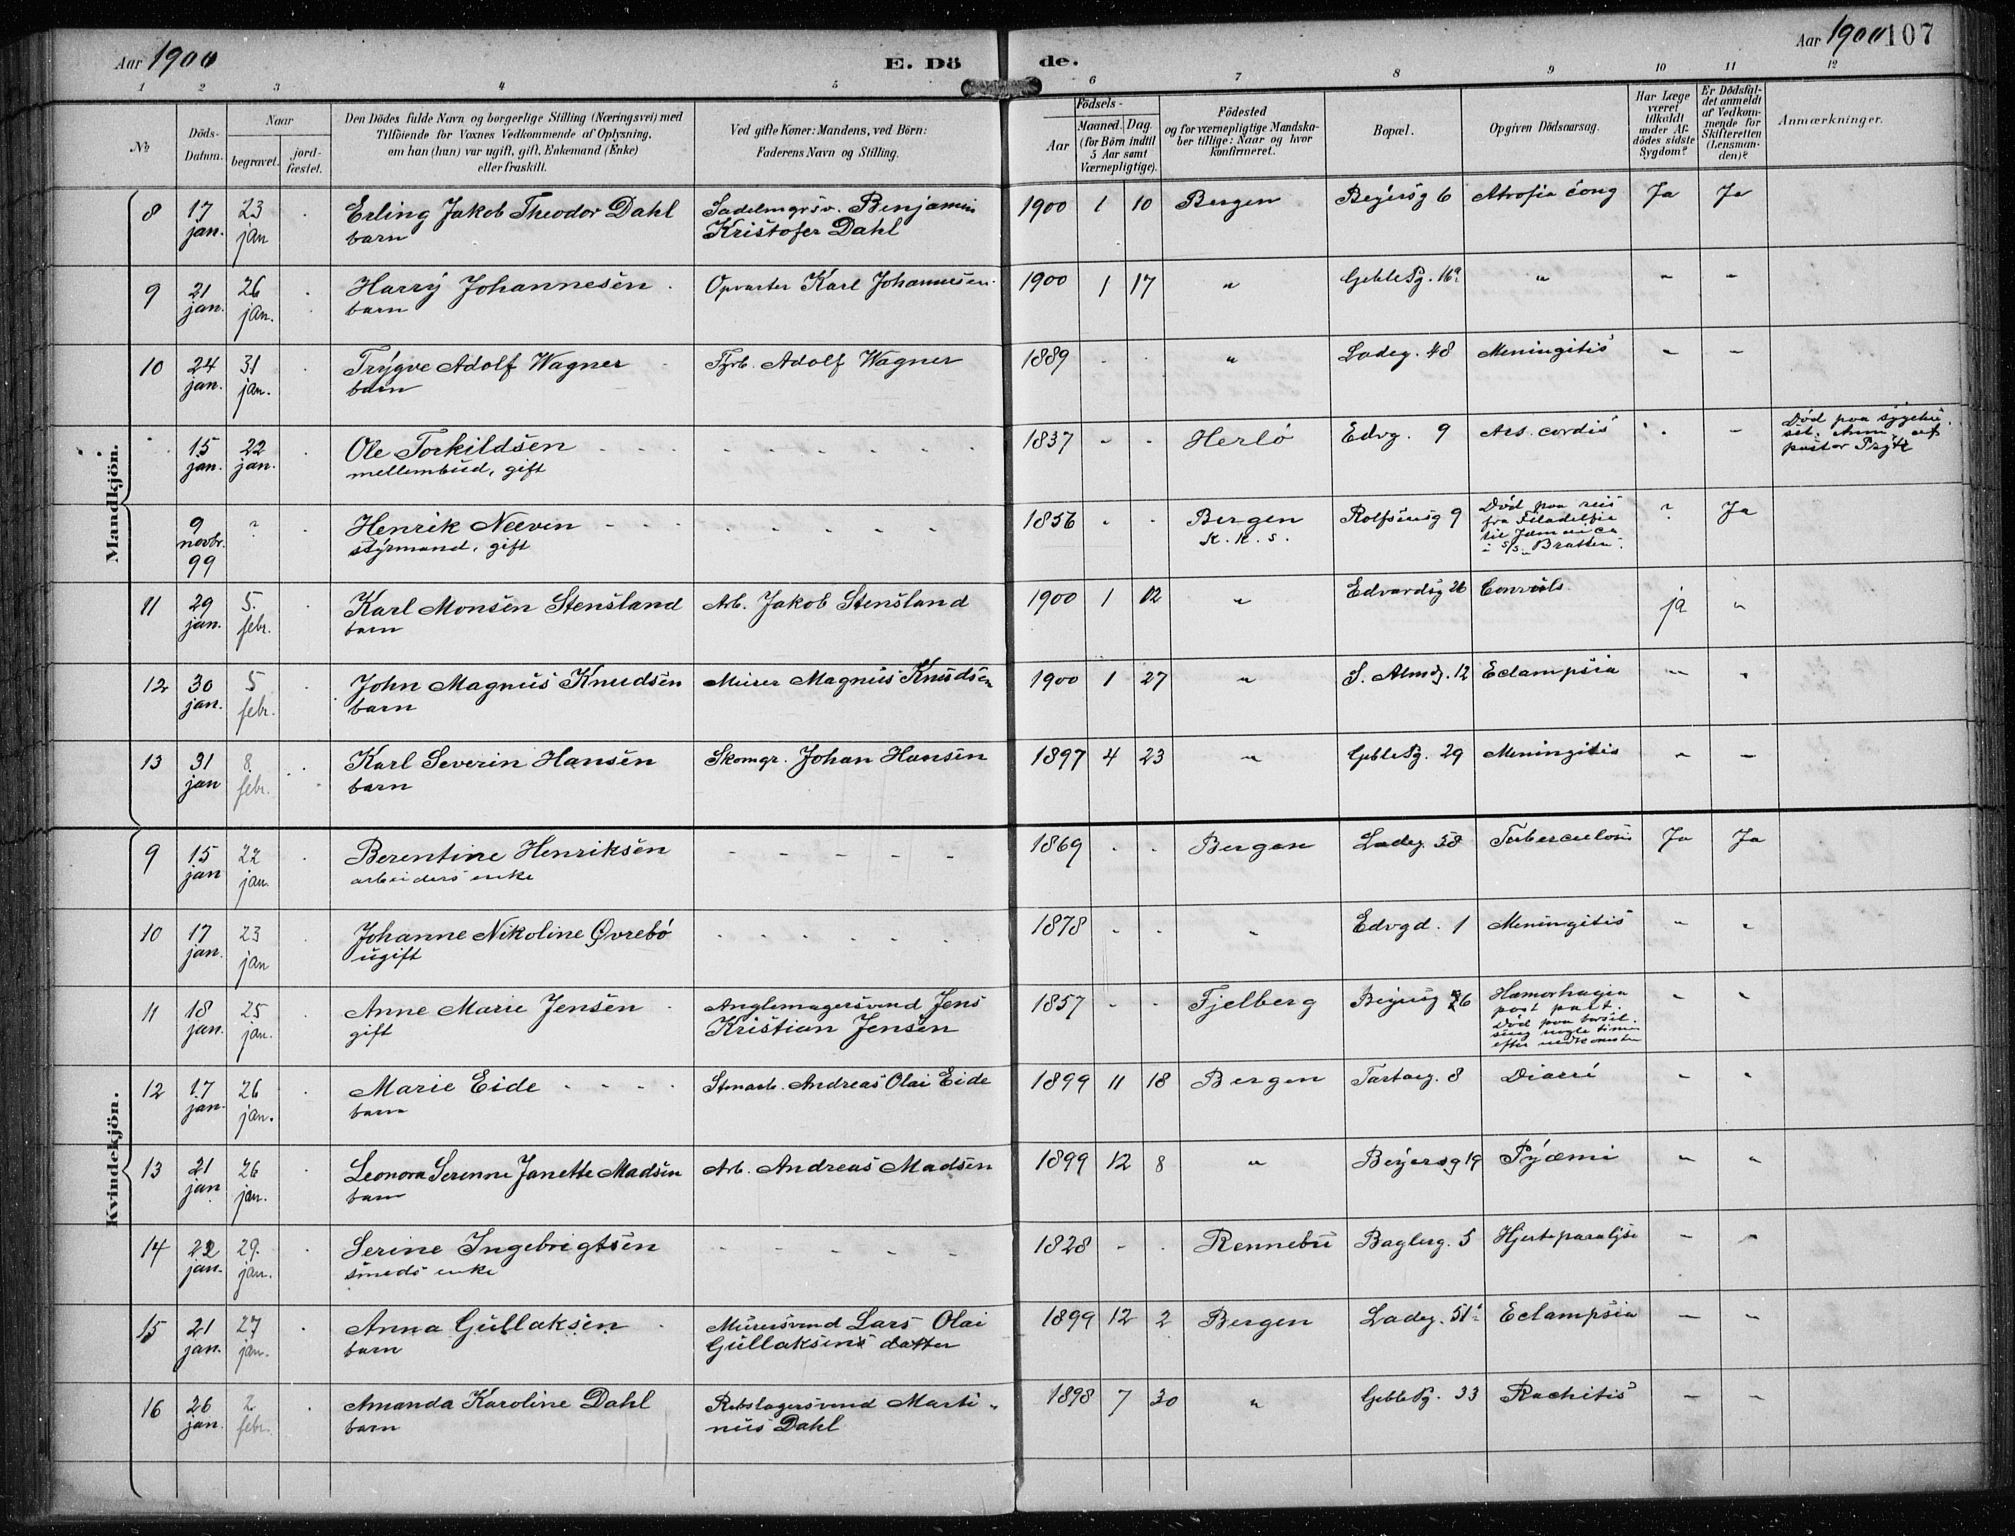 Aar 1900
E. Dö
de.
Aar 1900 107
1 2 3 4 5 6 7 8 9 10 11 12
No
Döds-Datum.
Naar
begravet.
jordfæstet.
Den Dödes fulde Navn og borgerlige Stilling (Næringsvei) med
Tilföiende for Voxnes Vedkommende af Oplysning,
om han (hun) var ugift, gift, Enkemand (Enke)
eller fraskilt.
Ved gifte Koner: Mandens, ved Börn:
Faderens Navn og Stilling.
Födsels-
Aar
Maaned. Dag.
(for Börn indtil
5 Aar samt
Værnepligtige).
Födested
og for værnepligtige Mandskaber
tillige: Naar og hvor
konfirmeret.
Bopæl.
Opgiven Dödsaarsag.
Har Læge
været
tilkaldt
under Afdödes
sidste
Sygdom?
Er Dödsfaldet
anmeldt
af Vedkommende
for
Skifteretten
(Lensmanden)?
Anmærkninger.
Mandkjön.
8 17 jan. 23 jan Erling Jakob Theodor Dahl barn Sadelmgrsv. Benjamin Kristofer Dahl 1900 1 10 Bergen Beyersg 6 Atrofia cong Ja Ja
9 21 jan. 26 jan. Harry Johannesen barn Opvarter Karl Johannesen 1900 1 17 " Geble Pg. 16a " " "
10 24 jan. 31 jan. Trygve Adolf Wagner barn Fyrb. Adolf Wagner 1889 - - " Ladeg. 48 Meningitis " "
15 jan. 22 jan. Ole Torkildsen mellembud, gift - - - 1837 - - Herlö Edvg. 9 cordis - " Död paa
9 novbr. 99 ? Henrik Neevin styrmand, gift - - - 1856 - - Bergen K. K. s. Rolfsensg 9 Död paa reis fra Filadelfia til Jamaica i S/S "Bratten". ? Ja
11 29 jan. 5. febr. Karl Monsen Stensland barn Arb. Jakob Stensland 1900 1 02 " Edvardsg 26 Convuls. ja "
12 30 jan. 5 febr. John Magnus Knudsen barn Murer Magnus Knudsen 1900 1 27 " S. Almdg. 12 Eclampsia " "
13 31 jan 8 febr. Karl Severin Hansen barn Skomgr. Johan Hansen 1897 4 23 " Geble Pg. 29 Meningitis " "
Kvindekjön.
9 15 jan 22 jan. Berentine Henriksen arbeiders enke - - - 1869 - - Bergen Ladeg. 58 Tuberculosis Ja Ja
10 17 jan. 23 jan Johanne Nikoline Øvrebö ugift - - - 1878 - - " Edvgd. 1 Meningitis " "
11 18 jan. 25 jan. Anne Marie Jensen gift Anglemagersvend Jens Kristian Jensen 1857 - - Fjelberg Beyersg 26 Hæmorhagia post part. Död paa barselseng nogle timer efter nedkomsten " "
12 17 jan. 26 jan. Marie Eide barn Stenarb. Andreas Olai Eide 1899 11 18 Bergen Tartarg. 8 Diarré " "
13 21 jan 26 jan. Leonora Serenne Janette Madsen barn Arb. Andreas Madsen 1899 12 8 " Beyersg 19 Pyæmi " "
14 22 jan. 29. jan. Serine Ingebrigtsen smeds enke - - - 1828 - - Rennebu Baglerg. 5 Hjerteparalyse " "
15 21 jan. 27 jan. Anna Gullaksen barn Murersvend Lars Olai Gullaksens datter 1899 12 2 Bergen Ladeg. 51a Eclampsia " "
16 26 jan. 2. febr. Amanda Karoline Dahl barn Rebslagersvend Martinius Dahl 1898 7 30 " Geble Pg. 33 Rachitis " "